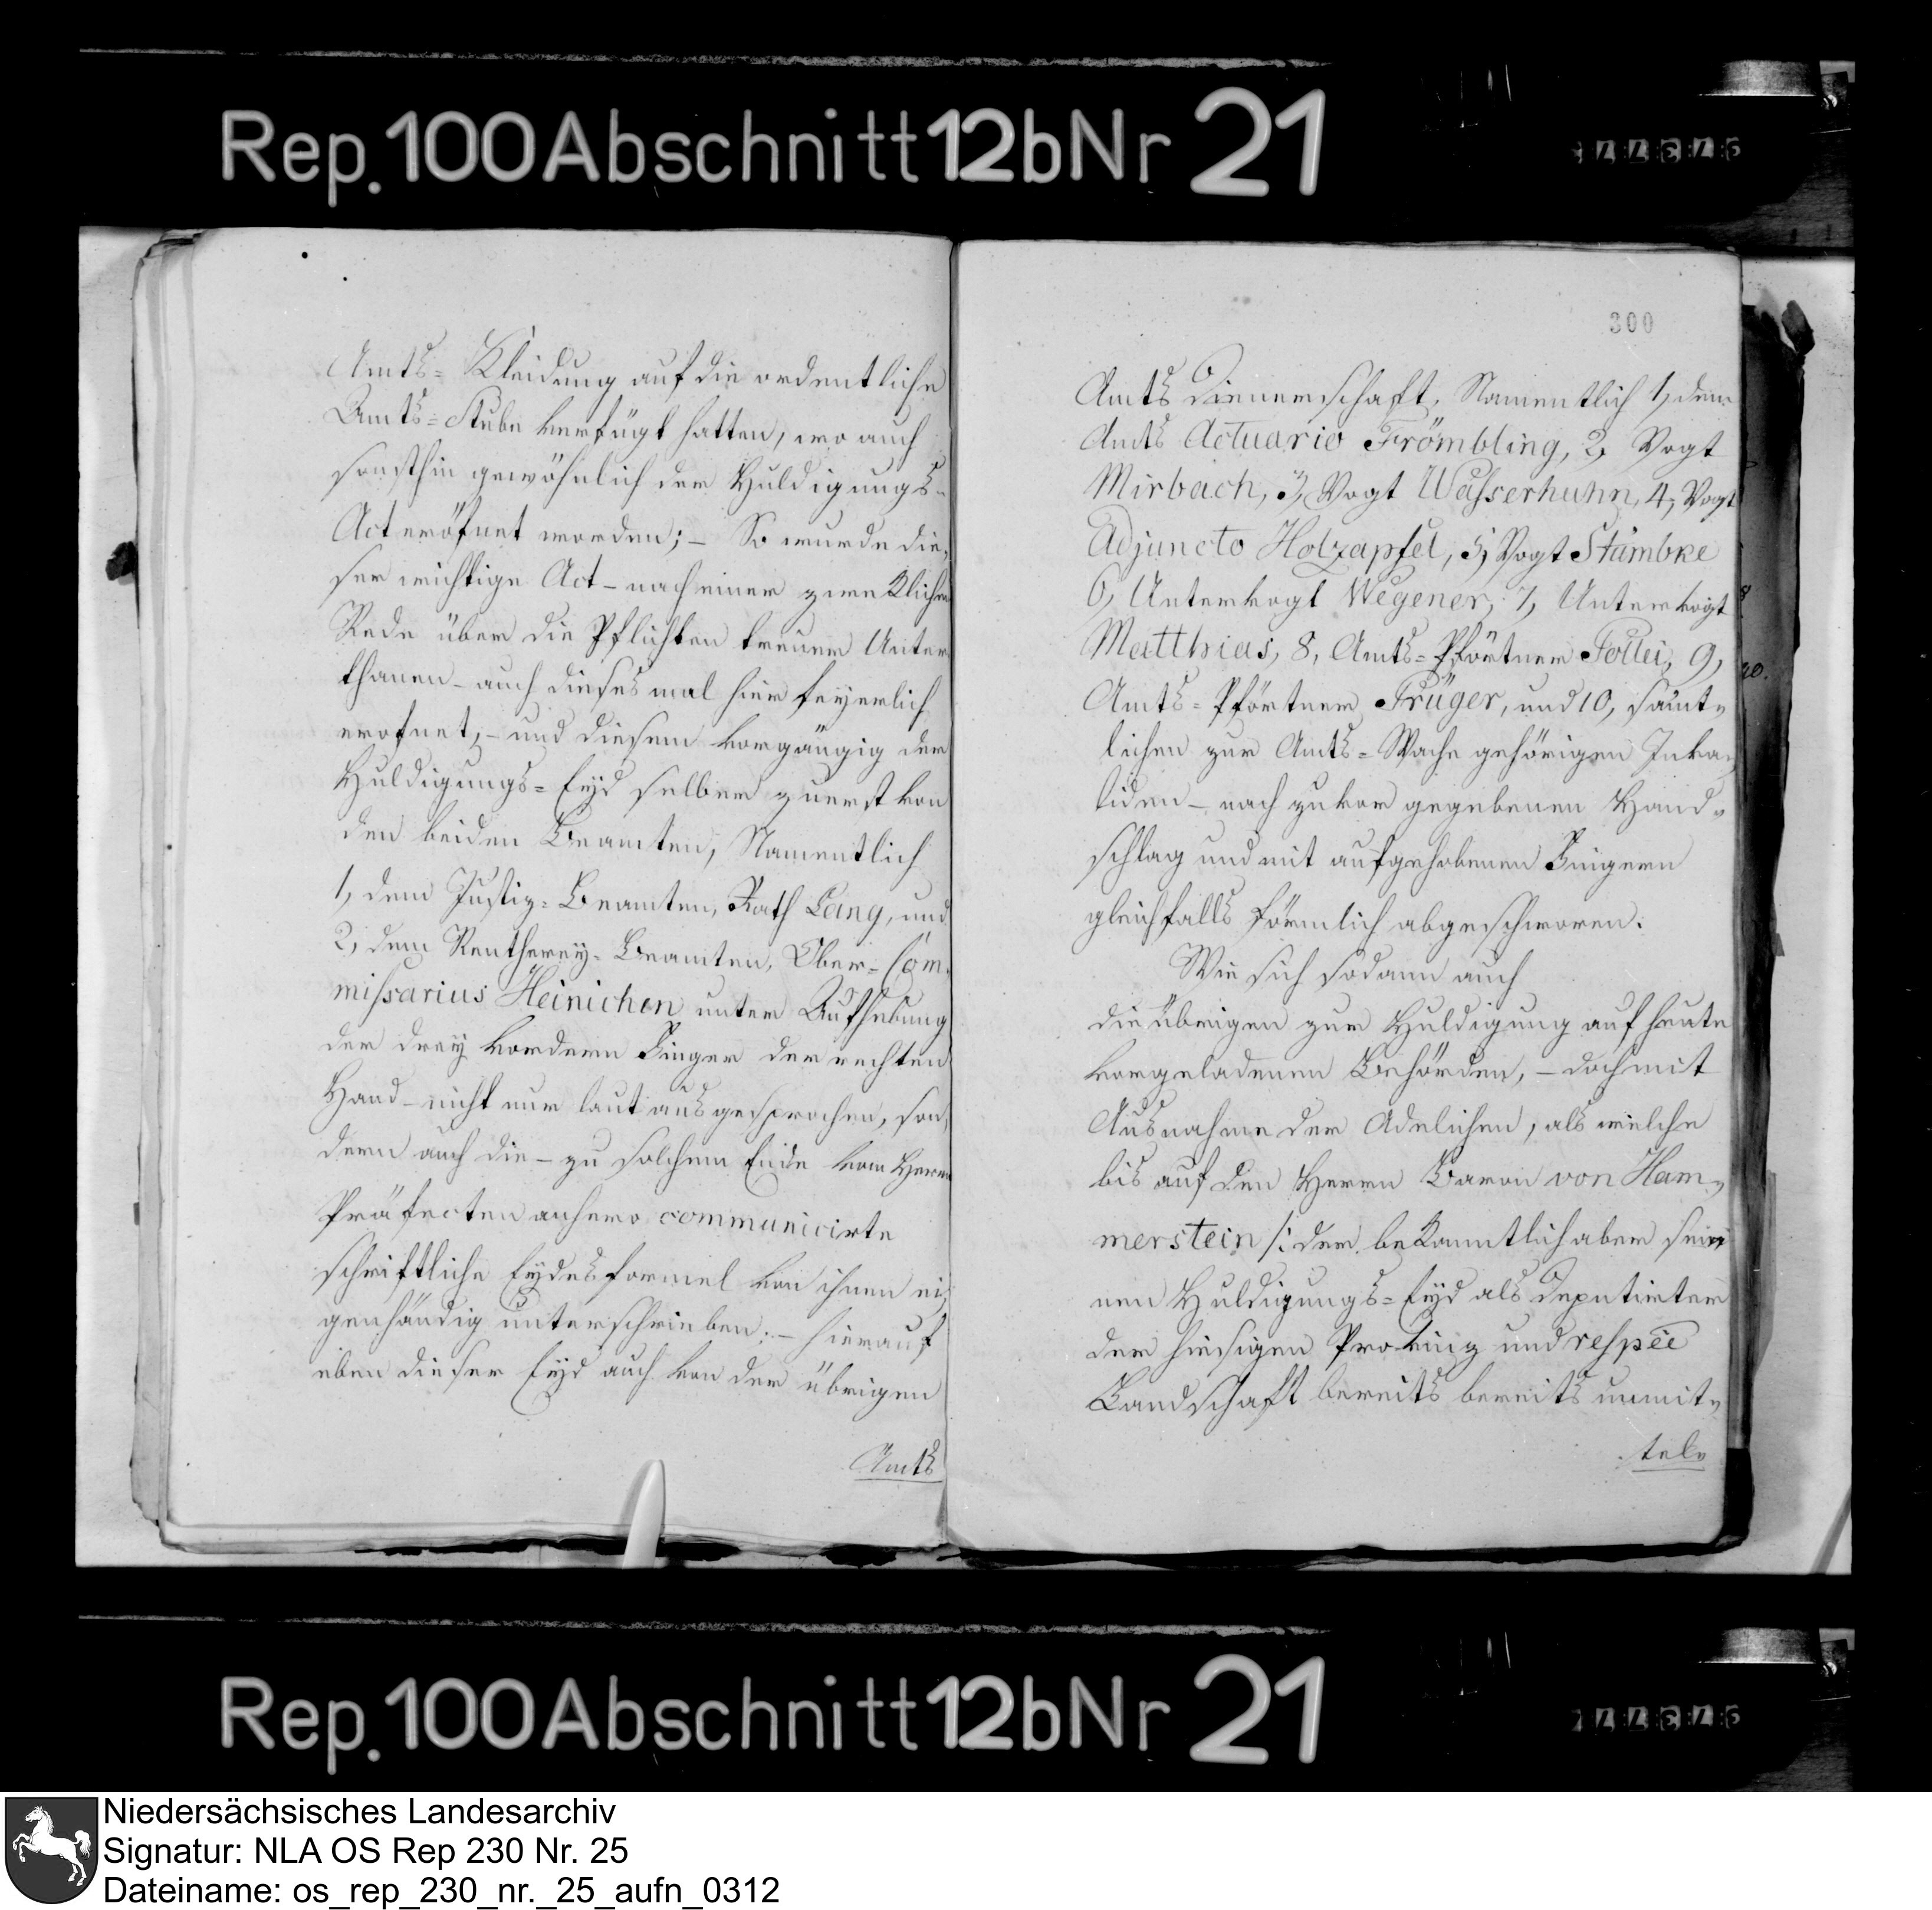 Rep. 100 Abschnitt 12b Nr 21
Amts= Kleidung auf die ordentliche
Amts=Stube verfügt hatten, wo auch
sonsthin gewöhnlich der Huldigungs=
Act eröfnet worden; – So wurde die,
ser wichtige Act – nach einer zweklichen
Rede über die Pflichten treuer Unter
thanen – auch dieses mal hier feyerlich
erofnet, – und diesem vorgängig der
Huldigungs=Eyd selber zuerst von
den beiden Beamten, Namentlich
1, dem Justiz=Beamten, Rath Lang, und
2, dem Rentherey=Beamten, Ober=Com̄,
missarius Heinichen unter Aufhebung
der drey vordern Finger der rechten
Hand – nicht nur laut ausgesprochen, son,
dern auch die – zu solchem Ende vom Herrn
Präfecten anhero communicirte
schriftliche Eydesformel von ihnen ei,
genhändig unterschrieben; – hierauf
eben dieser Eyd auch von der übrigen
Amts
300
Amts Dienerschaft, Namentlich 1, dem
Amts Actuario Frömbling, 2, Vogt
Mirbach, 3, Vogt Wasserhuhn, 4, Vogt
Adjuncto Holzapfel, 5, Vogt Stämbke
6, Untervogt Wegener, 7, Untervogt
Matthias, 8, Amts=Pförtner 9,
Amts=Pförtner Früger, und 10, sämt=
lichen zur Amts=Wache gehörigen Inva=
liden – nach zuvor gegebenen Hand=
schlag und mit aufgehobenen Fingern
gleichfalls förmlich abgeschworen.
Wie sich sodann auch
die übrigen zur Huldigung auf heute
vorgeladenen Behörden, – doch mit
Ausnahme der Adelichen, als welche
bis auf den Herrn Baron von Ham=
merstein /: der bekanntlich aber sei
nen Huldigungs=Eyd als Deputirter
der hiesigen Provinz und respēe
Landschaft bereits bereits unmit=
tel=
Rep. 100 Abschnitt 12b Nr 21
Niedersächsisches Landesarchiv
Signatur: NLA OS Rep 230 Nr. 25
Dateiname: os_rep_230_nr._25_aufn_0312